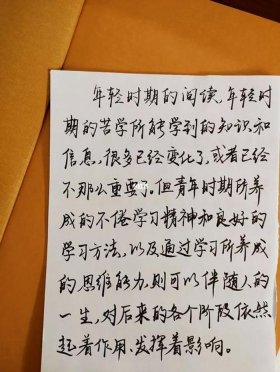 年轻时期的阅读,年轻时
期的苦学所能学到的知识和
信息,很多已经变化了,或者已经
不那么重要了。但青年时期所养
成的不倦学习精神和良好的
学习方法,以及通过学习所养成
的思维能力,则可以伴随人的
一生,对后来的各个阶段依然
起着作用、发挥着影响。